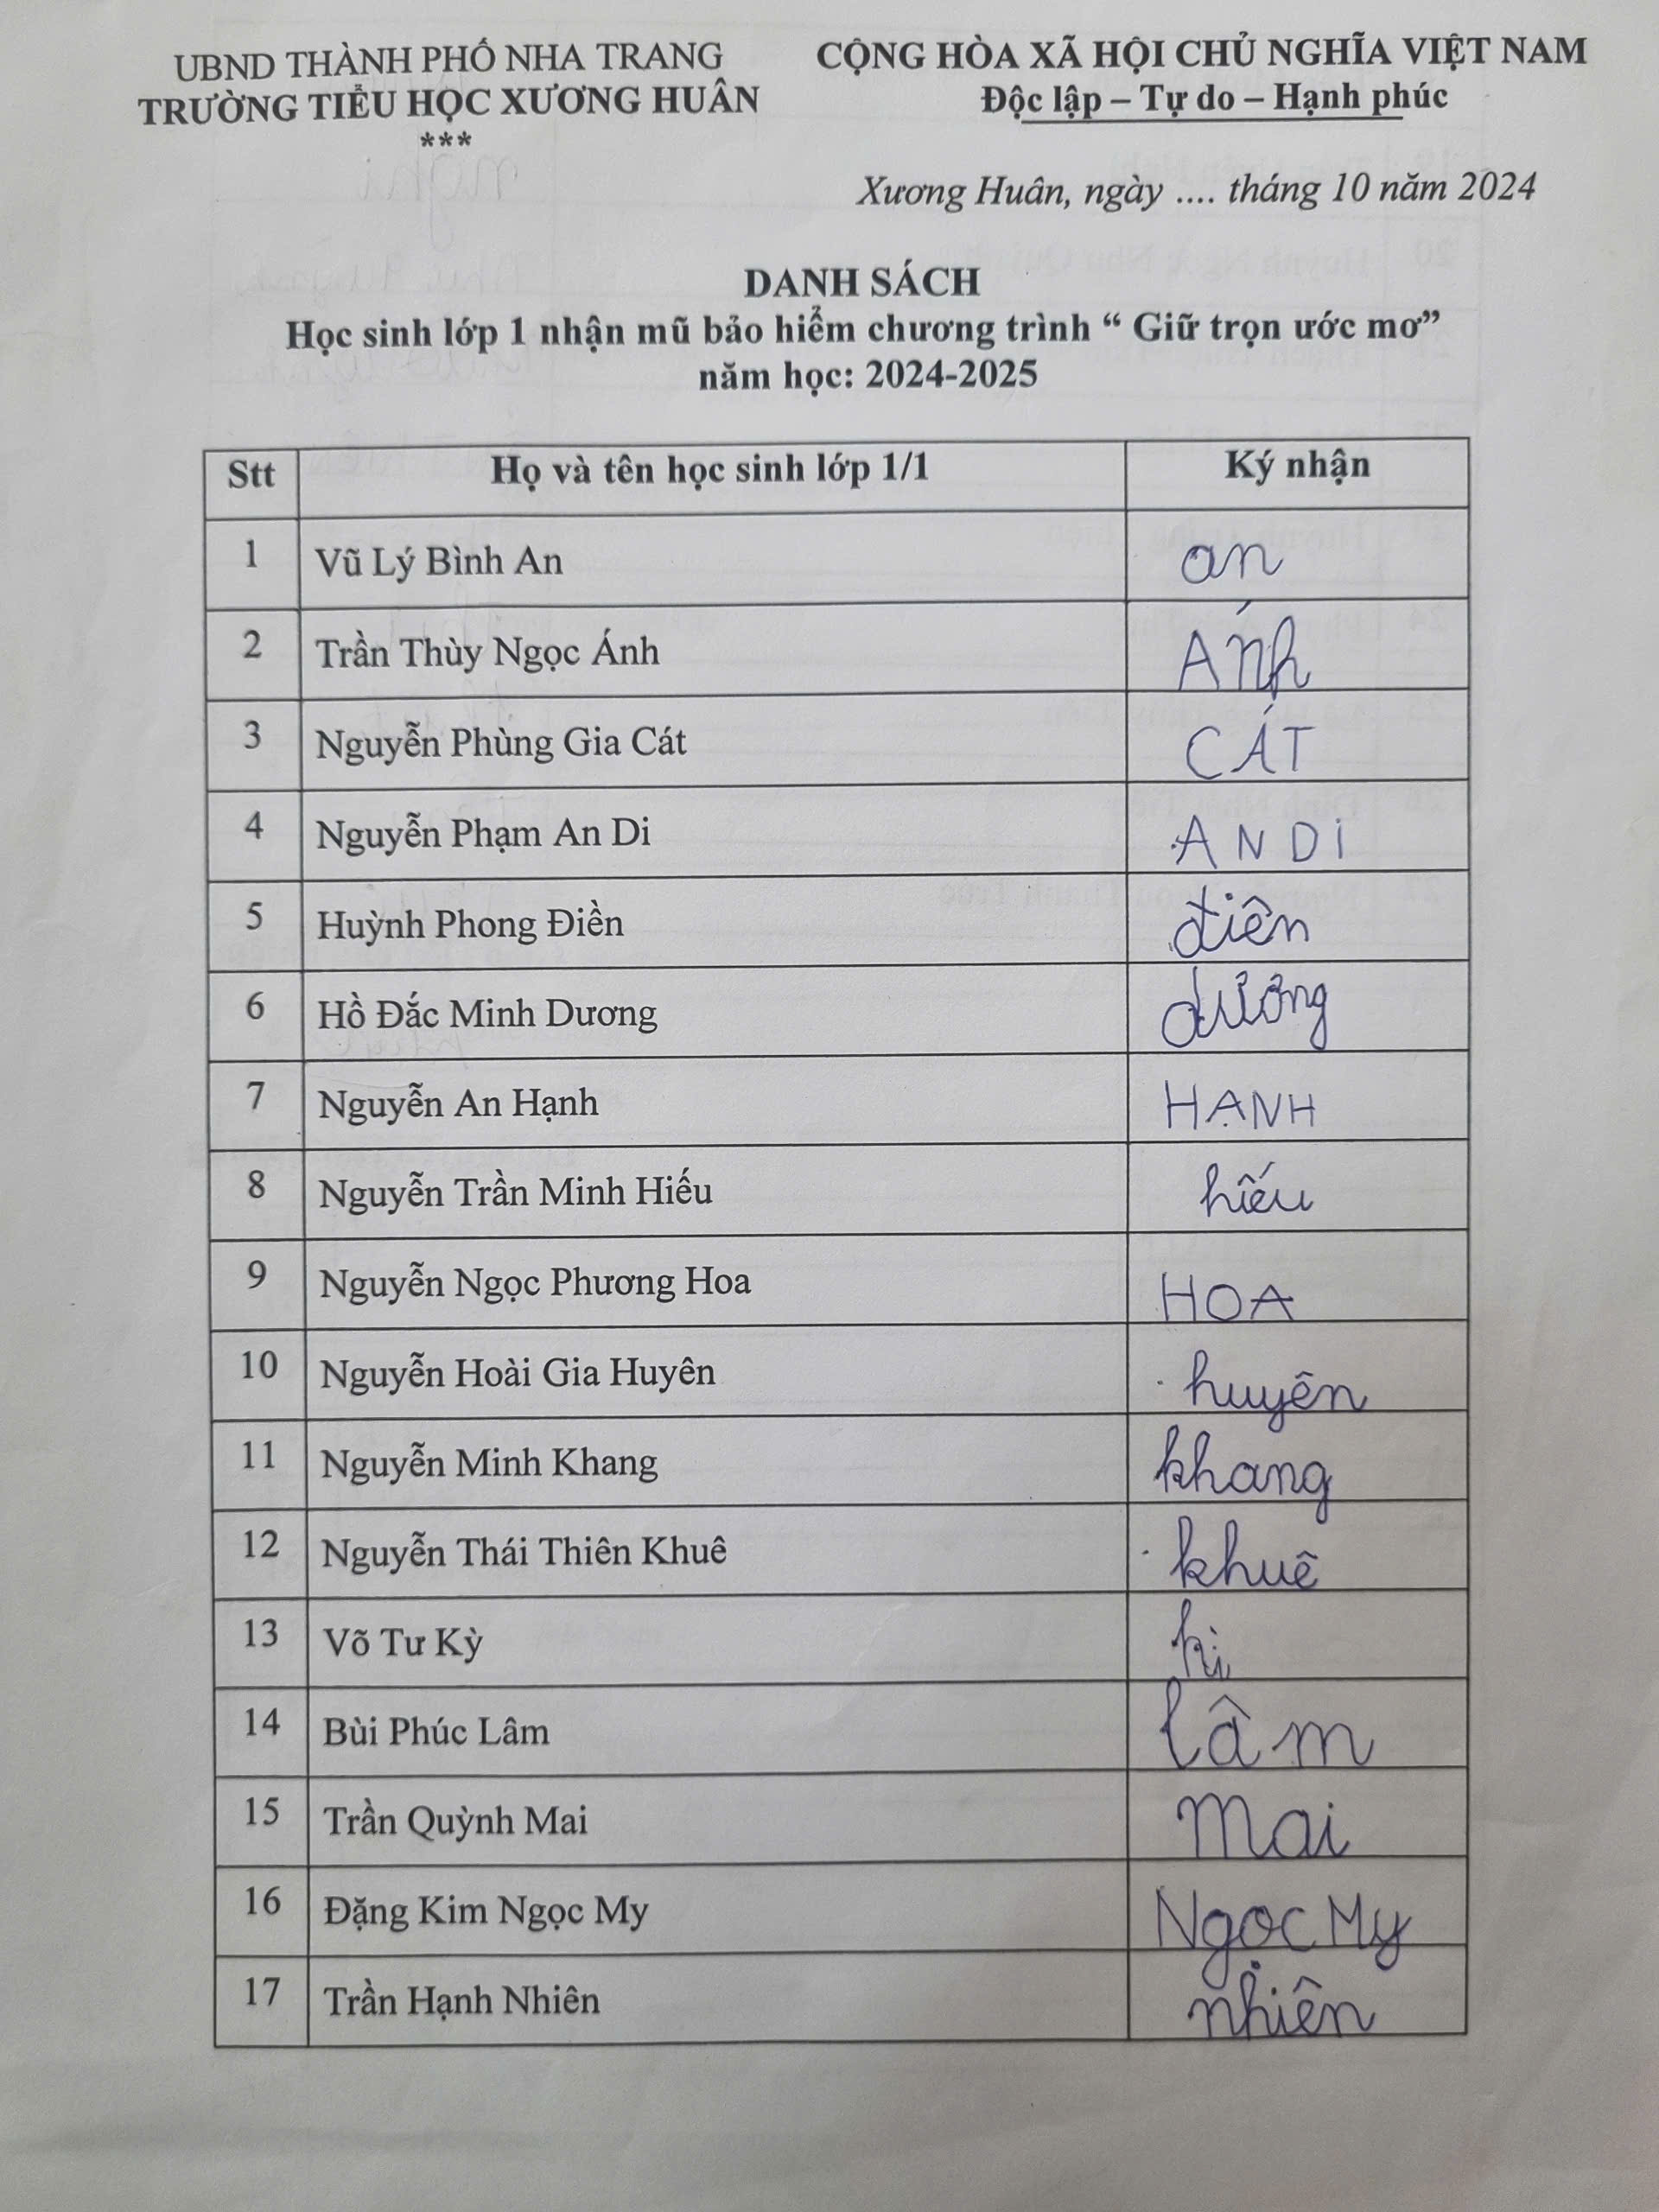 UBND THÀNH PHỐ NHA TRANG
TRƯỜNG TIỂU HỌC XƯƠNG HUÂN
***
CỘNG HÒA XÃ HỘI CHỦ NGHĨA VIỆT NAM
Độc lập – Tự do – Hạnh phúc
Xương Huân, ngày .... tháng 10 năm 2024
DANH SÁCH
Học sinh lớp 1 nhận mũ bảo hiểm chương trình “ Giữ trọn ước mơ”
năm học: 2024-2025
Stt Họ và tên học sinh lớp 1/1 Ký nhận
1 Vũ Lý Bình An an
2 Trần Thùy Ngọc Ánh Ánh
3 Nguyễn Phùng Gia Cát CÁT
4 Nguyễn Phạm An Di AN Di
5 Huỳnh Phong Điền điền
6 Hồ Đắc Minh Dương dương
7 Nguyễn An Hạnh HẠNH
8 Nguyễn Trần Minh Hiếu hiếu
9 Nguyễn Ngọc Phương Hoa HOA
10 Nguyễn Hoài Gia Huyên huyên
11 Nguyễn Minh Khang khang
12 Nguyễn Thái Thiên Khuê khuê
13 Võ Tư Kỳ kì
14 Bùi Phúc Lâm lâm
15 Trần Quỳnh Mai Mai
16 Đặng Kim Ngọc My Ngọc My
17 Trần Hạnh Nhiên nhiên